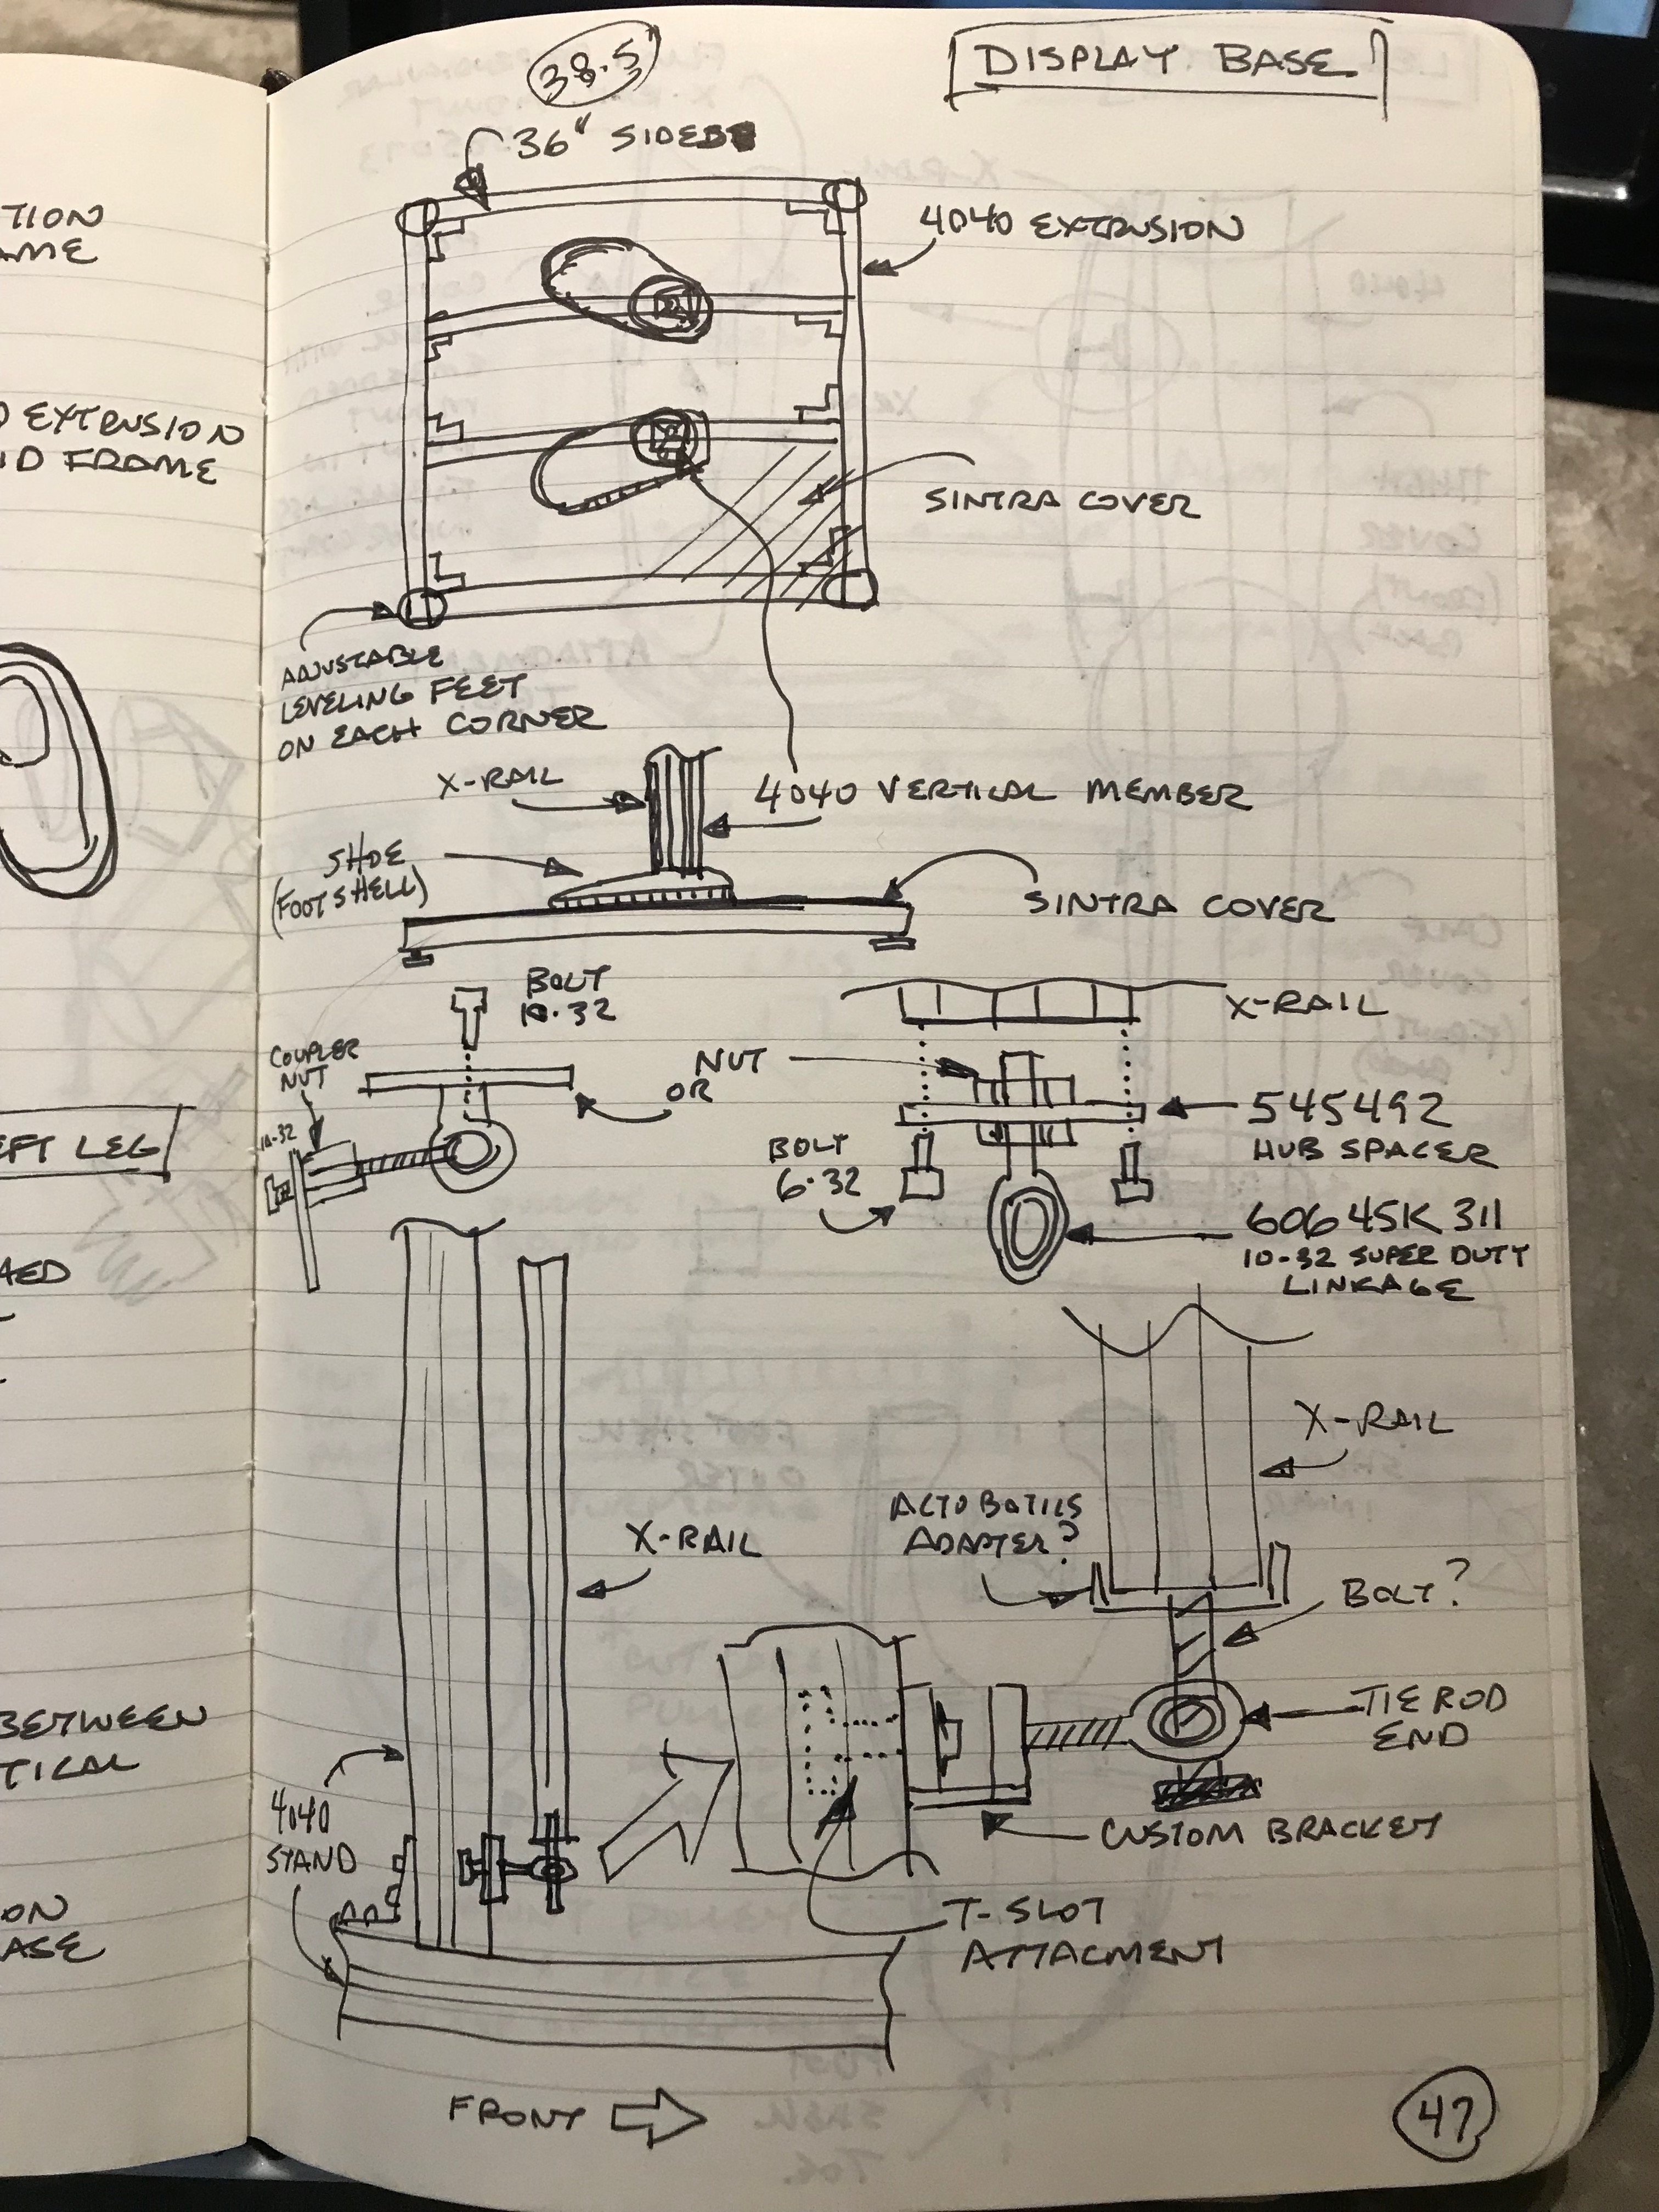 DISPLAY BASE
38.5"
36" SIDES
4040 EXTRUSION
SINTRA COVER
ADJUSTABLE
LEVELING FEET
ON EACH CORNER
X-RAIL
4040 VERTICAL MEMBER
SHOE
(FOOT SHELL)
SINTRA COVER
BOLT
10.32
COUPLER
NUT
10-32
OR
X-RAIL
NUT
545492
HUB SPACER
BOLT
6.32
60645K311
10-32 SUPER DUTY
LINKAGE
X-RAIL
X-RAIL
ACTOBOTICS
ADAPTER?
BOLT?
TIE ROD
END
CUSTOM BRACKET
T-SLOT
ATTACMENT
4040
STAND
FRONT
47
TION
AME
EXTENSION
ID FRAME
EFT LEG
BETWEEN
TICAL
ON
ASE